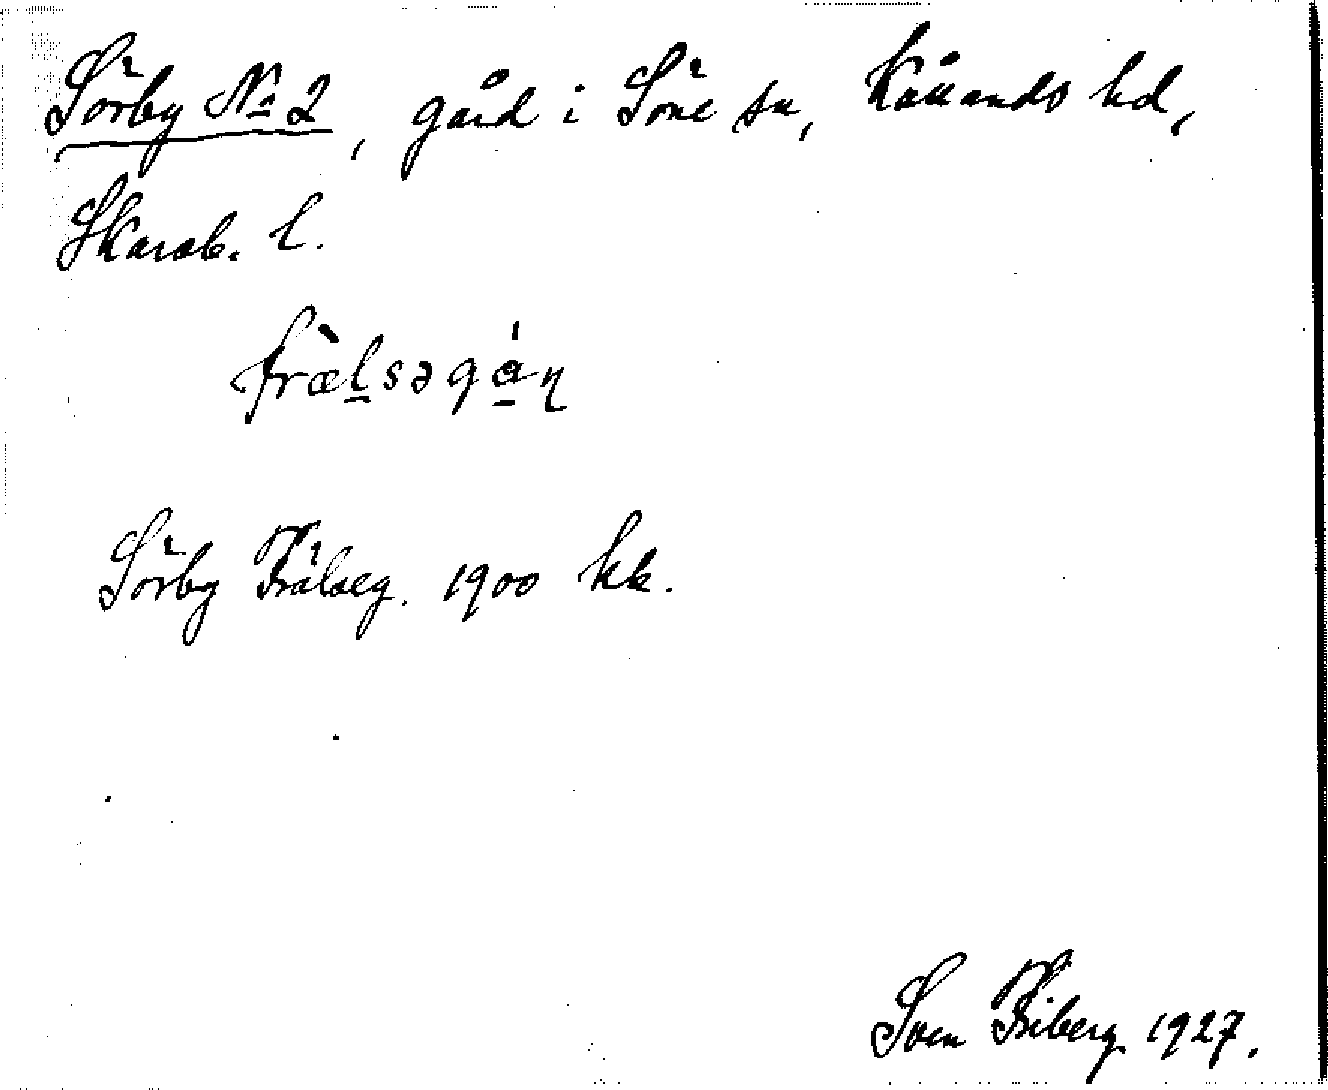 Sörby No 2, gård i Söne sn, Kållands hd,
Skarab. l.
fræ̀l̠səgá̠ɳ
Sörby Frälseg. 1900 kk.
Sven Friberg 1927.